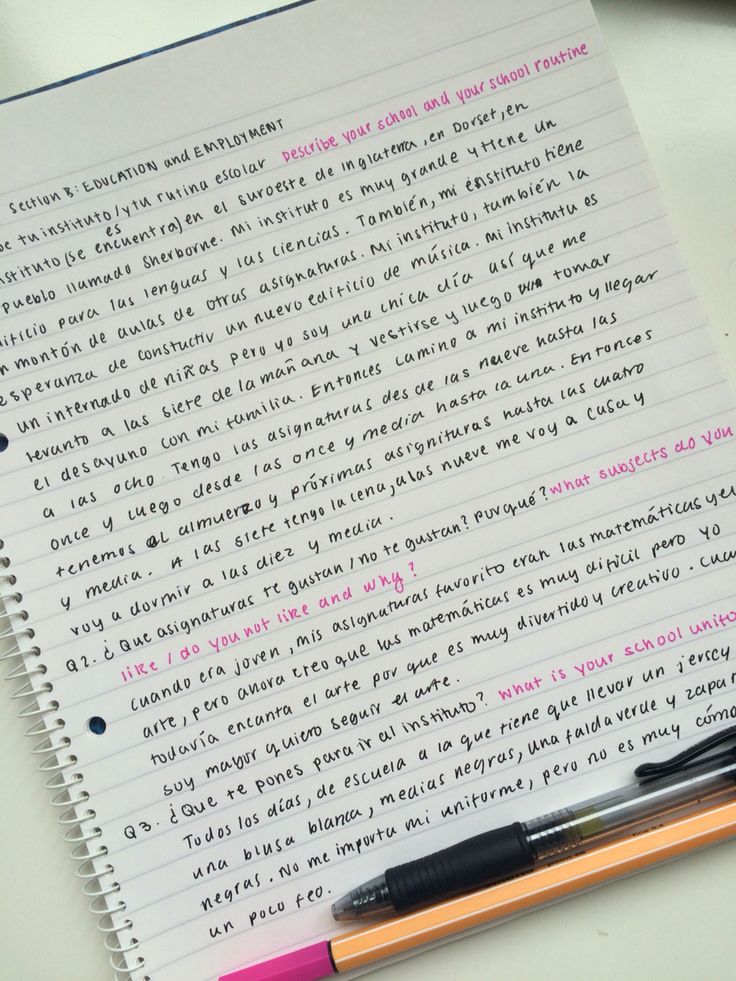 Section B: EDUCATION and EMPLOYMENT
be tu instituto/y tu rutina escolar Describe your school and your school routine
stituto (se encuentra) es en el suroeste de Inglaterra, en Dorset, en
pueblo llamado Sherborne. Mi instituto es muy grande y tiene un
dificio para las lenguas y las ciencias. También, mi enstituto tiene
n montón de aulas de otras asignaturas. Mi instituto, también la
esperanza de constuctiv un nuevo edificio de música. mi institutu es
un internado de niñas pero yo soy una chica día así que me
levanto a las siete de la mañana y vestirse y luego tomar
el desayuno con mi familia. Entonces camino a mi instituto y llegar
a las ocho. Tengo las asignaturas des de las nueve hasta las
once y luego desde las once y media hasta la una. Entonces
tenemos el almuerzo y próximas asignituras hasta las cuatro
y media. A las siete tengo la cena, a las nueve me voy a casa y
voy a dormir a las diez y media.
Q2. ¿Que asignaturas te gustan / no te gustan? Porqué? What subjects do you
like / do you not like and why?
cuando era joven, mis asignaturas favorito eran las matemáticas y el
arte, pero ahora creo que las matemáticas es muy difícil pero yo
todavía encanta el arte por que es muy divertido y creativo. Cua
soy mayor quiero seguir el arte.
Q3. ¿Que te pones para ir al instituto? What is your school unifo
Todos los días, de escuela a la que tiene que llevar un jersey
una blusa blanca, medias negras, una falda verde y zapa
negras. No me importa mi uniforme, pero no es muy cómo
un poco feo.